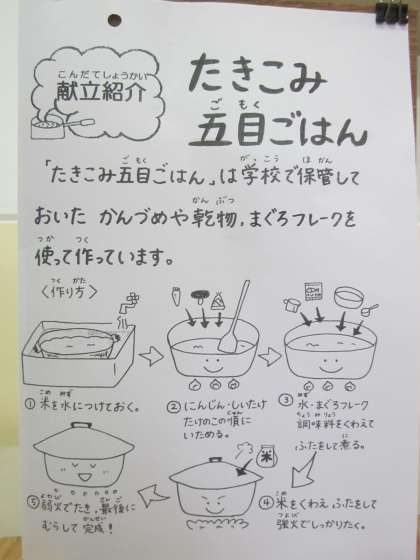 こんだてしょうかい
献立紹介
たきこみ
ごもく
五目ごはん
ごもく がっこう ほかん
「たきこみ五目ごはん」は学校で保管して
かんぶつ
おいた かんづめや乾物,まぐろフレークを
つか つく
使って作っています。
つく かた
〈作り方〉
こめ みず
① 米を水につけておく。
② にんじん・しいたけ
じゅん
たけのこの順に
いためる。
③ 水・まぐろフレーク
ちょうみりょう
調味料をくわえて
に
ふたをして煮る。
米
こめ
④ 米をくわえ,ふたをして
つよび
強火でしっかりたく。
よわび さいご
⑤ 弱火でたき,最後に
かんせい
むらして完成!